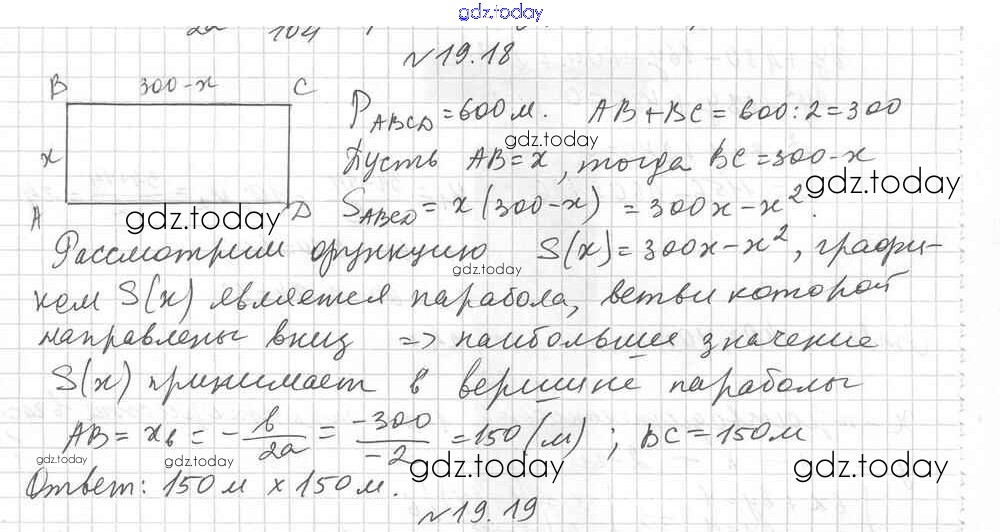 gdz.today
2a 104
№19.18
B 300-x C
P_ABCD = 600м. AB+BC = 600:2 = 300
gdz.today
x Пусть AB=x, тогда BC=300-x
gdz.today
A gdz.today D S_ABCD = x(300-x) = 300x-x².
Рассмотрим функцию S(x)=300x-x², графи-
gdz.today
ком S(x) является парабола, ветви которой
направлены вниз => наибольшее значение
S(x) принимает в вершине параболы
AB = x_в = -b/2a = -300/-2 = 150(м); BC=150м
gdz.today gdz.today gdz.today gdz.today
Ответ: 150м x 150м.
№19.19